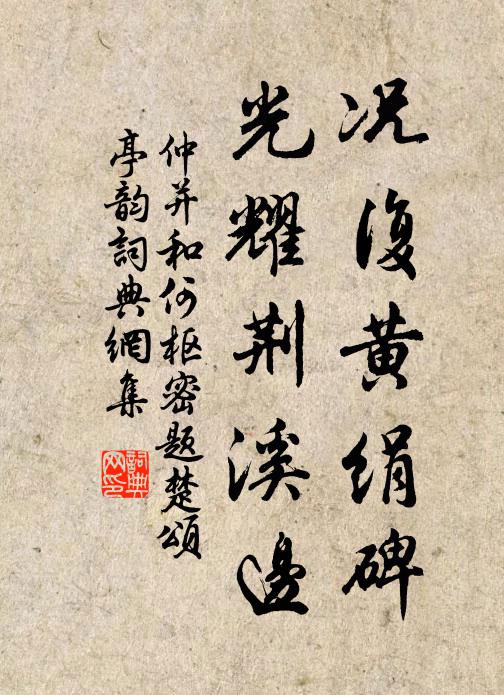 况復黄絹碑
光耀荆溪邊
仲并和何枢密題楚頌
亭韵詞典網集
詞典网印